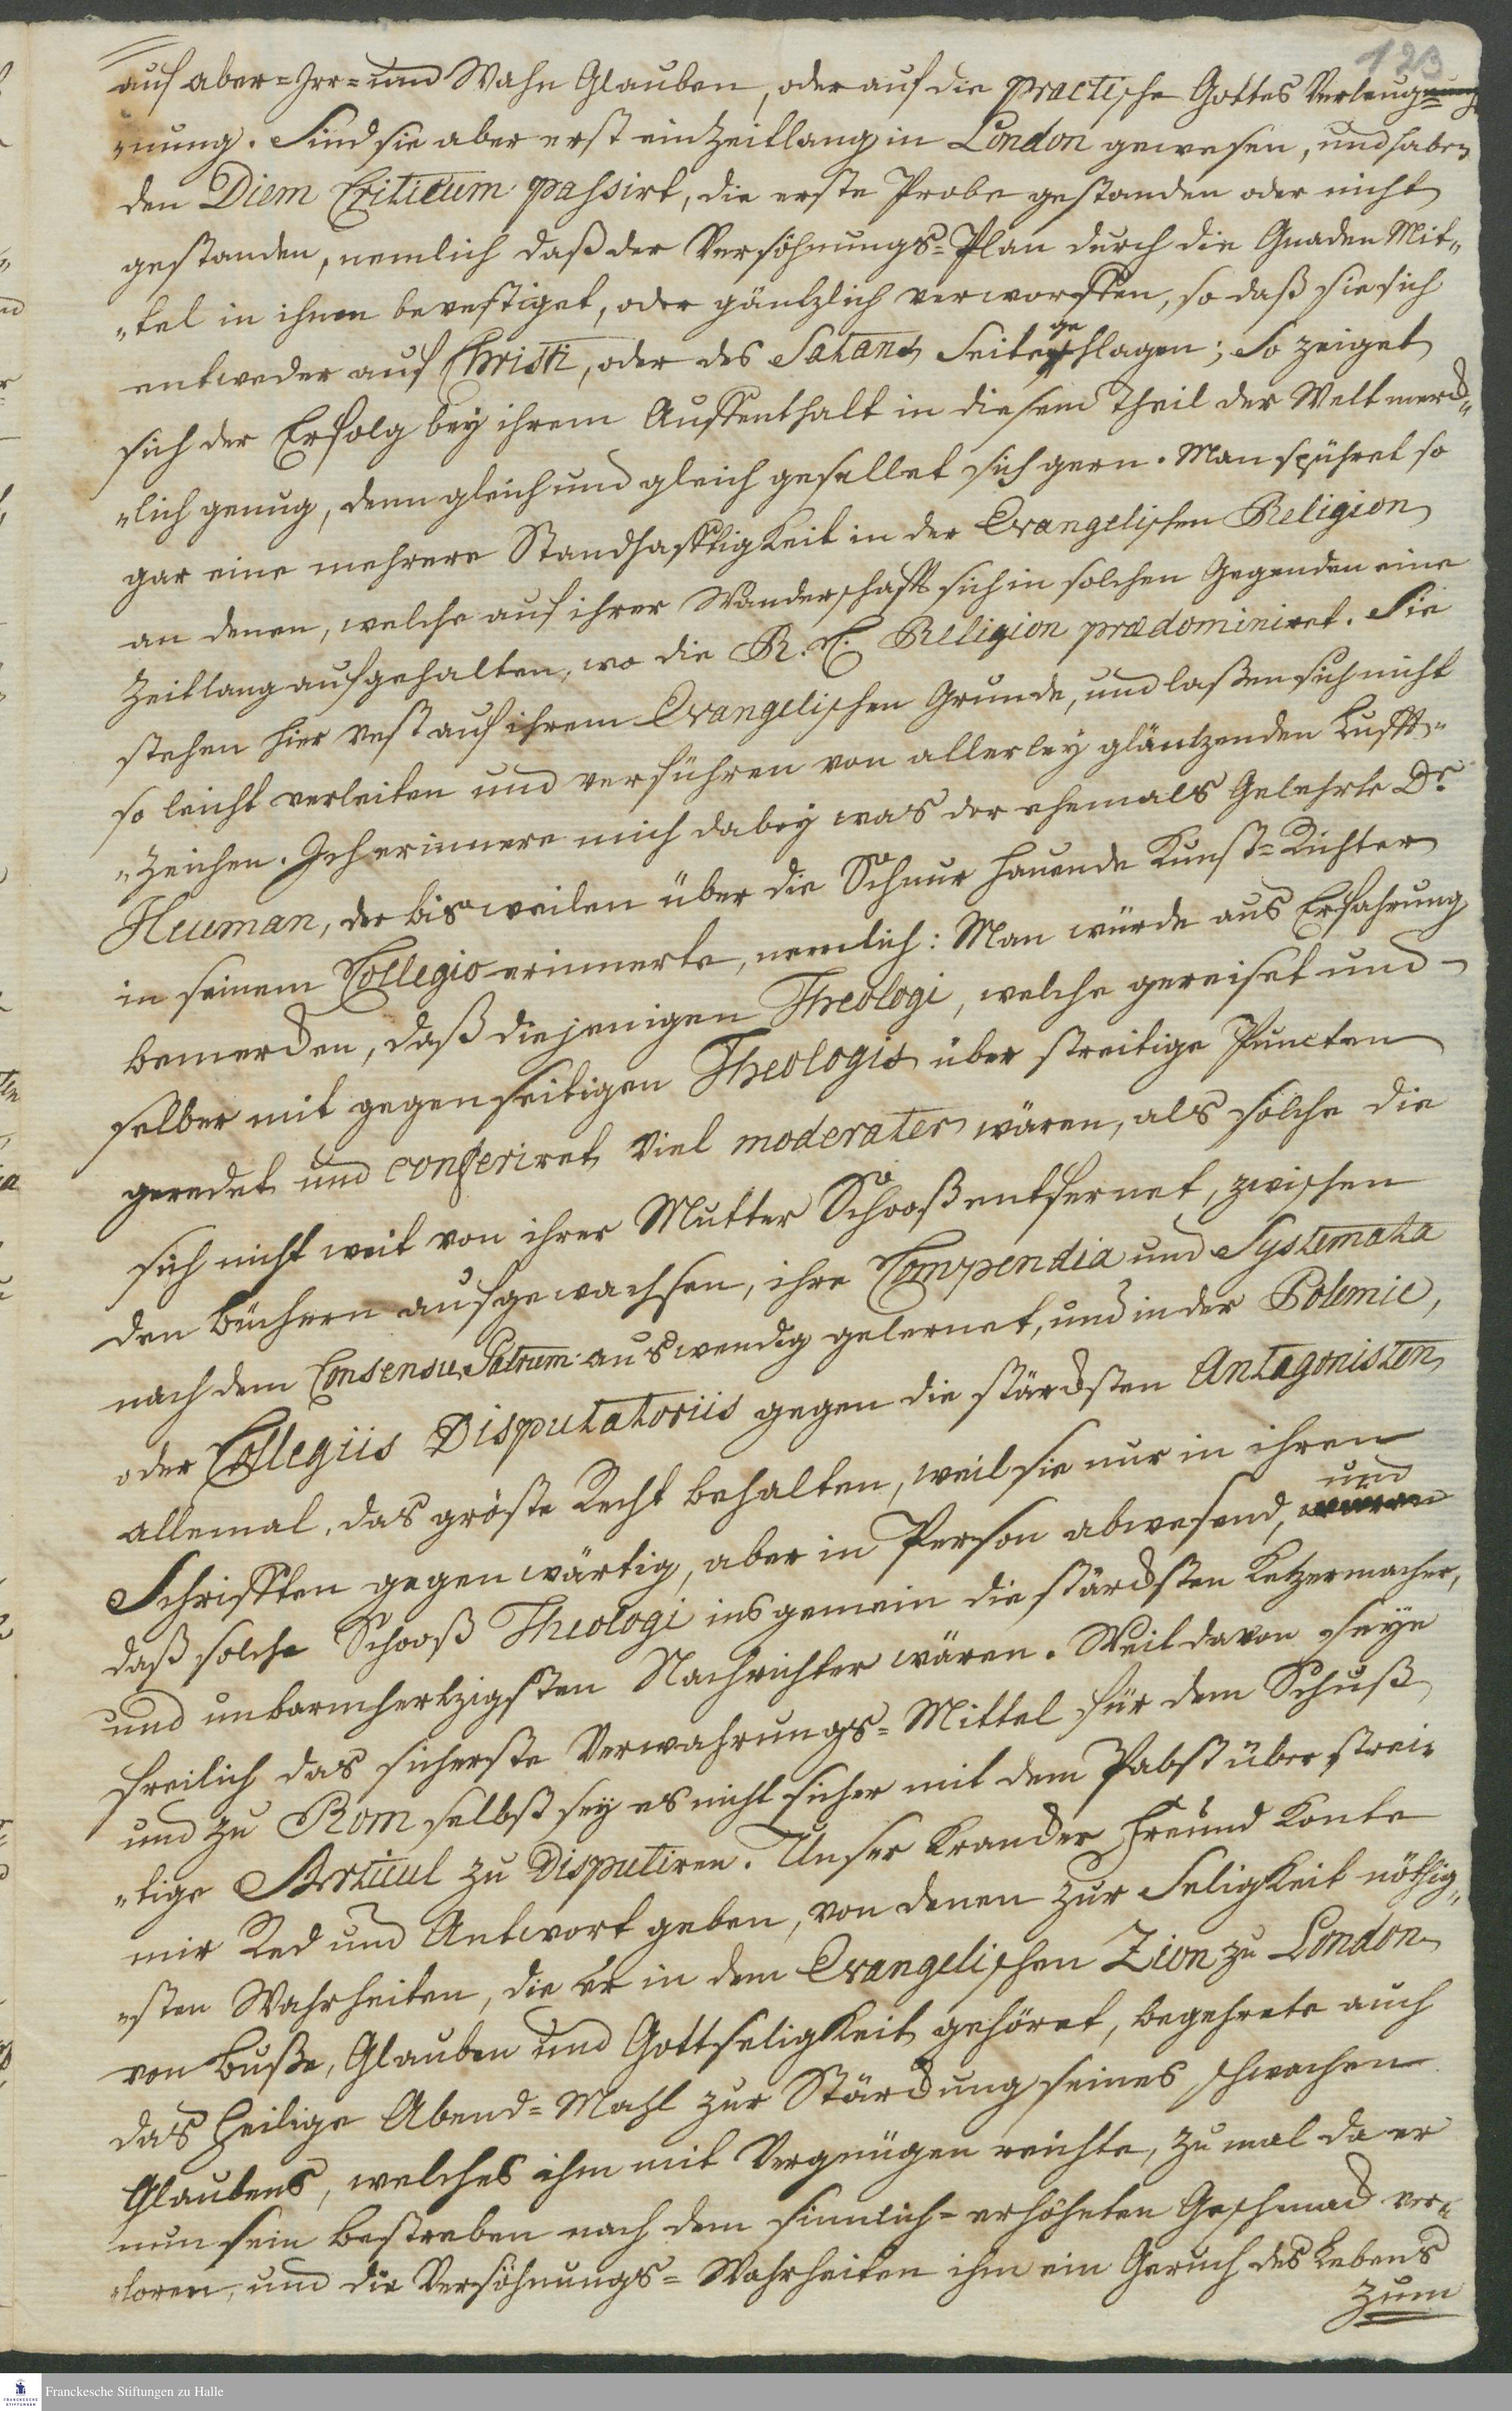 123
auf aber=Irr=und Wahn Glauben, oder auf die practische Gottes Verleug=
"nung. Sind sie aber erst ein Zeitlang in London gewesen, und haben
den Diem Criticum passirt, die erste Probe gestanden oder nicht
gestanden, nemlich daß der Versöhnungs=Plan durch die Gnaden Mit„
„tel in ihnen bevestiget, oder gäntzlich verworffen, so daß sie sich
entweder auf Christi, oder des Satans Seite geschlagen; So zeiget
sich der Erfolg bey ihrem Auffenthalt in diesem Theil der Welt merck„
„lich genug, denn gleich und gleich gesellet sich gern. Man spühret so
gar eine mehrere Standhafftigkeit in der Evangelischen Religion
an denen, welche auf ihrer Wanderschafft sich in solchen Gegenden eine
Zeitlang aufgehalten, wo die R. C. Religion prædominiret. Sie
stehen hier vest auf ihrem Evangelischen Grunde, und laßen sich nicht
so leicht verleiten und verführen von allerley gläntzenden Lufft„
„Zeichen. Ich erinnere mich dabey was der ehemals Gelehrte Dr
Heuman, der bisweilen über die Schnur hauende Kunst=Richter
in seinem Collegio erinnerte, nemlich: Man würde aus Erfahrung
bemercken, daß diejenigen Theologi, welche gereiset und
selber mit gegenseitigen Theologis über streitige Puncten
geredet und conferiret viel moderater wären, als solche die
sich nicht weit von ihrer Mutter Schooß entfernet, zwischen
den Büchern aufgewachsen, ihre Compendia und Systemata
nach dem Consensu Patrum auswendig gelernet, und in der Polemic,
oder Collegiis Disputatoriis gegen die stärcksten Antagonisten
allemal, das gröste Recht behalten, weil sie nur in ihren
Schrifften gegenwärtig, aber in Person abwesend, und
daß solche Schooß Theologi insgemein die stärcksten Ketzermacher,
und unbarmhertzigsten Nachrichter wären. Weit davon seye
freilich das sicherste Verwahrungs=Mittel für dem Schuß
und zu Rom selbst sey es nicht sicher mit dem Pabst über strei„
„tige Articul zu Disputiren. Unser krancker Freund konte
mir Red und Antwort geben, von denen zur Seligkeit nöthig„
„sten Wahrheiten, die er in dem Evangelischen Zion zu London
von Buße, Glauben und Gottseligkeit gehöret, begehrete auch
das heilige Abend=Mahl zur Stärckung seines schwachen
Glaubens, welches ihm mit Vergnügen reichte, zumal da er
nun sein Bestreben nach dem sinnlich=erhöheten Geschmack ver„
„loren, und die Versöhnungs=Wahrheiten ihm ein Geruch des Lebens
zum
Franckesche Stiftungen zu Halle